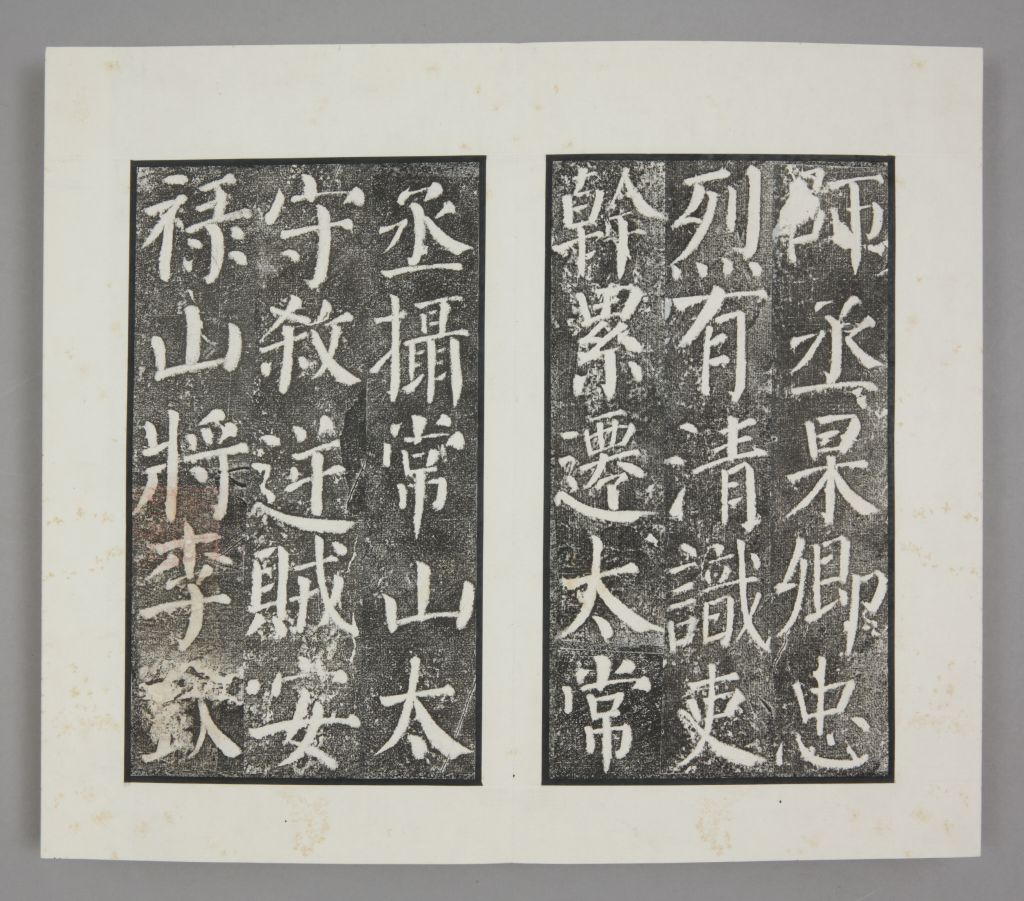 師丞杲卿忠
烈有清識吏
幹累遷太常
丞攝常山太
守殺逆賊安
祿山將李欽